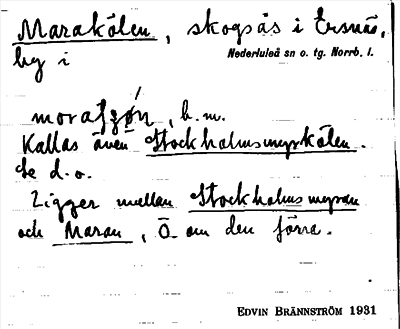 Marakölen, skogsås i Ersnäs,
by i Nederluleå sn o. tg. Norrb. l.
b.m.
Kallas även Stockholmsmyrkölen.
Se d.o.
Ligger mellan Stockholmsmyran
och Maran, Ö om den förra.
EDVIN BRÄNNSTRÖM 1931